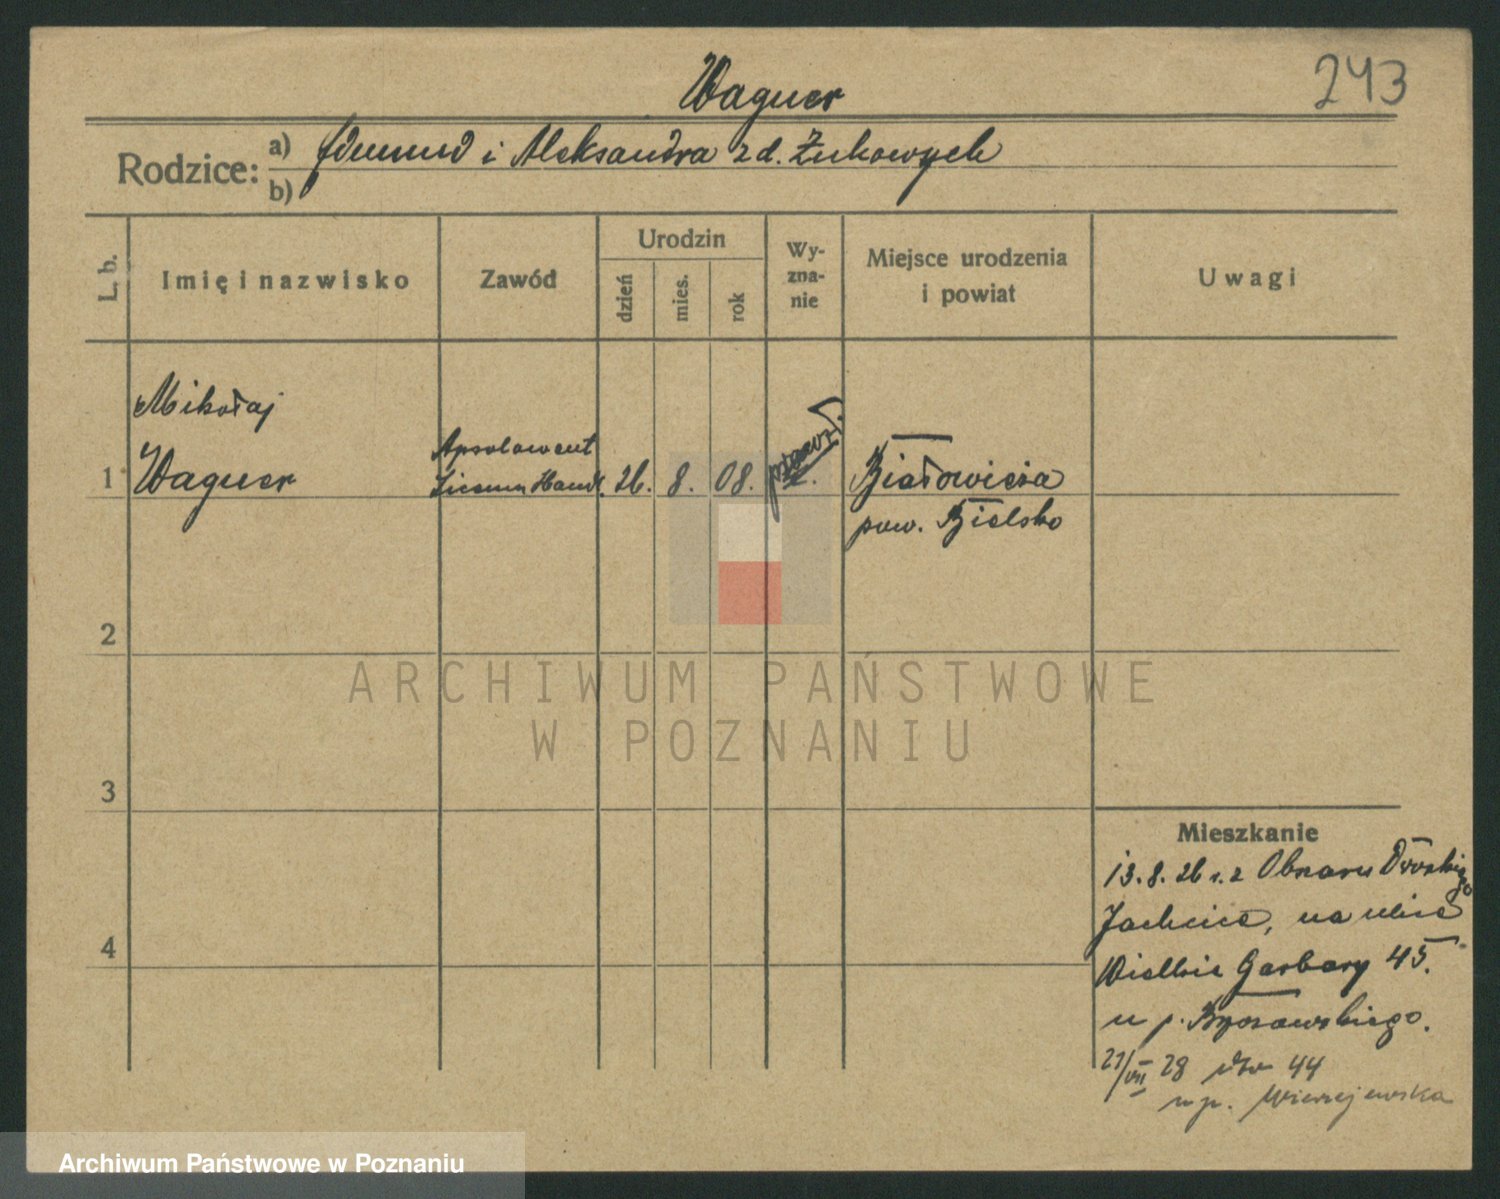 Wagner
243
Rodzice: a) Edmund i Aleksandra z d. Żukowych
b)
L. b. Imię i nazwisko Zawód Urodzin dzień mies. rok Wyznanie Miejsce urodzenia i powiat Uwagi
Mikołaj
1 Wagner
Apsolwent
Liceum Handl.
26. 8. 08.
prawosł.
Białowieża
pow. Bielsko
2
3
4
Mieszkanie
13. 8. 26 r. z Obszaru Dworskiego
Jachcice, na ulice
Wielkie Garbary 45.
u p.
21/VII 28 44
u p. Wierzejewska
ARCHIWUM PAŃSTWOWE
W POZNANIU
Archiwum Państwowe w Poznaniu